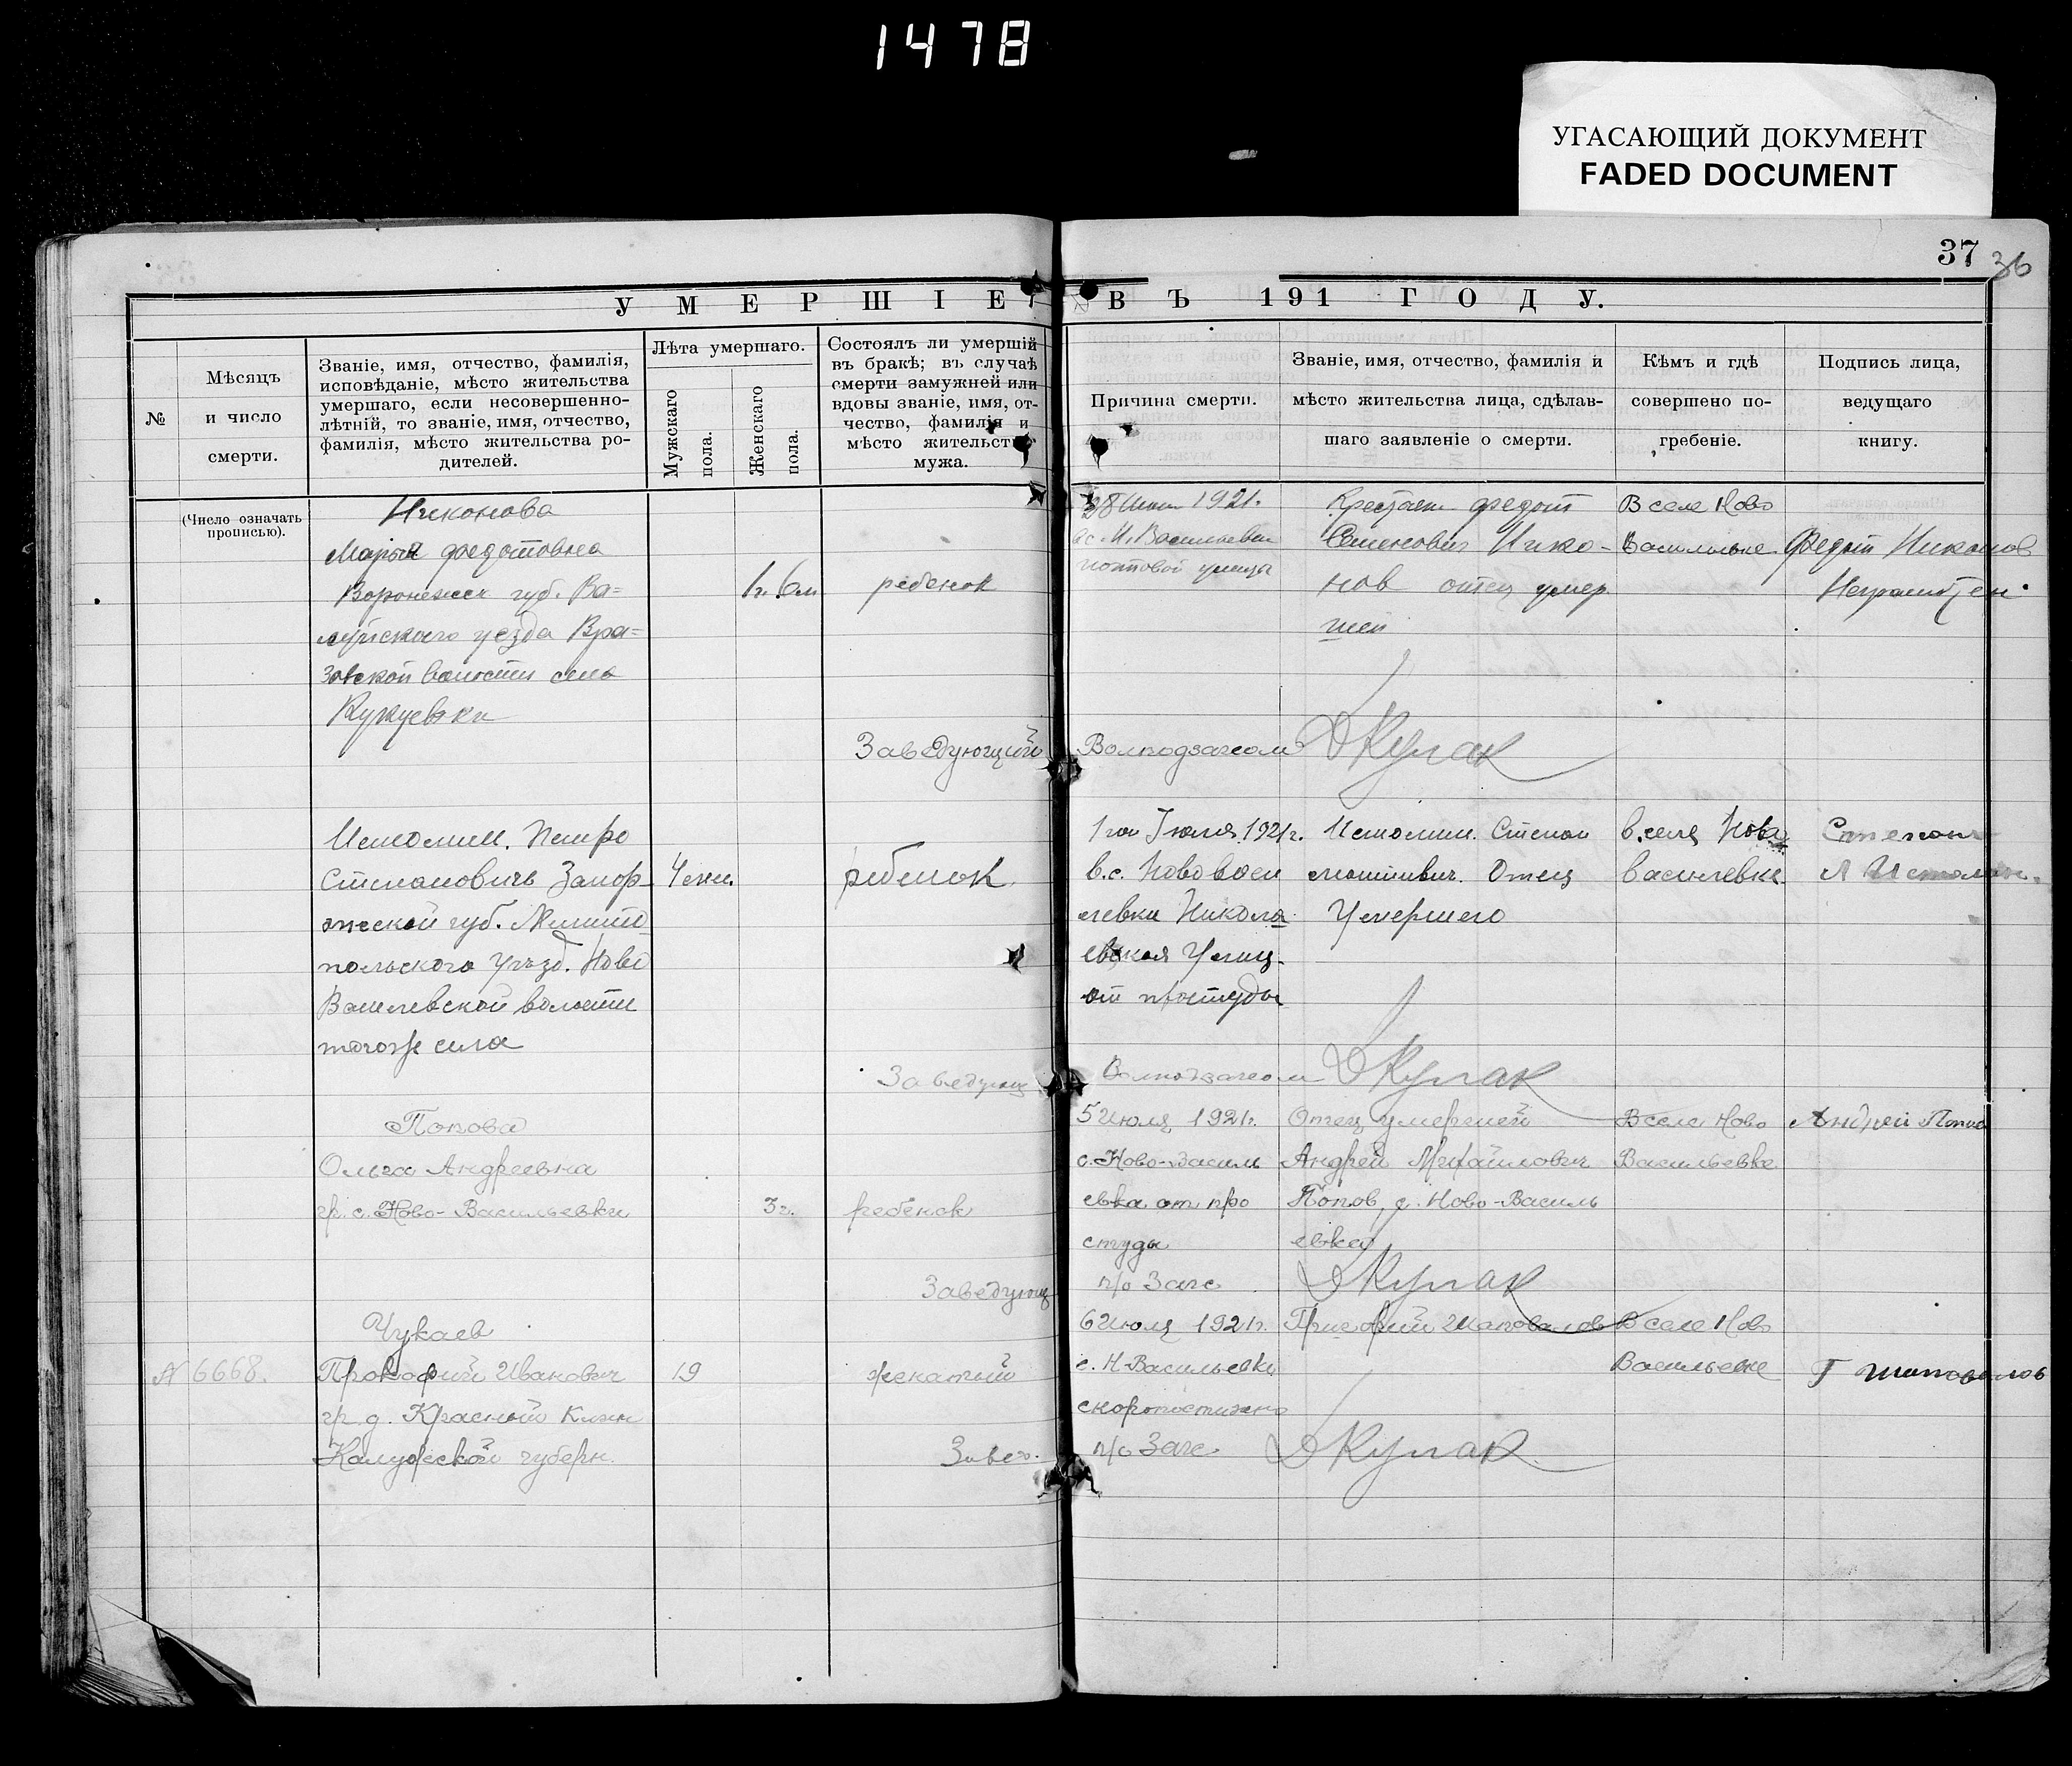 1478
УГАСАЮЩИЙ ДОКУМЕНТ
FADED DOCUMENT
37
36
УМЕРШІЕ ВЪ 191 ГОДУ.
№
Мѣсяцъ
и число
смерти.
Званіе, имя, отчество, фамилія,
исповѣданіе, мѣсто жительства
умершаго, если несовершенно-
лѣтній, то званіе, имя, отчество,
фамилія, мѣсто жительства ро-
дителей.
Лѣта умершаго.
Мужскаго
пола.
Женскаго
пола.
Состоялъ ли умершій
въ бракѣ; въ случаѣ
смерти замужней или
вдовы званіе, имя, от-
чество, фамилія и
мѣсто жительства
мужа.
Причина смерти.
Званіе, имя, отчество, фамилія и
мѣсто жительства лица, сдѣлав-
шаго заявленіе о смерти.
Кѣмъ и гдѣ
совершено по-
гребеніе.
Подпись лица,
ведущаго
книгу.
(Число означать
прописью).
Никонова
Мария Федотовна
Воронежск губ. Ва=
луйского уезда Вра=
зовской волости села
Кукуевки
1г. 6м
ребенок
28 1921г.
с. Н. Васильевки
улицы
Крестьян Федот
Семенович Нико-
нов отец умер
шей
В селе Ново
Васильевке
Федот Никонов
Неграмотен
Заведующий Волподзагсом ДКулак
Истомин. Петро
Степановичъ Запор
жской губ. Мелито
польского Уѣзд. Ново
Василевской волости
тогоже села
4 мец.
ребенок
1го Июля 1921г.
в.с. Нововаси
левки Никола
евская Улиц.
от простуды
Истомин. Степан
Отец
Умершего
в.селе Нова
василевки
Степан
Истомин.
Заведующ Волподзагсом ДКулак
Попова
Ольга Андреевна
гр. с. Ново-Васильевки
3г.
ребенок
5 Июля 1921г.
с. Ново-Василь
евка от про
студы
Отец умершей
Андрей Михайлович
Попов, с. Ново-Василь
евка
В селе Ново
Васильевке
Андрей Попов
Заведующ п/о Загс ДКулак
Чукаев
N 6668.
Прокофий Иванович
гр. д. Красный Клин
Калужской губерн.
19
женатый
6 Июля 1921г.
с. Н-Васильевки
скоропостижно
Григорий Шаповалов
В селе Ново
Васильевке
Г Шаповалов
Завед. п/о Загс ДКулак